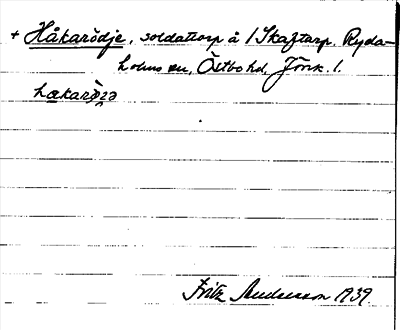 + Håkarödje, soldattorp å 1 Skaftarp, Ryda-
holms sn, Östbo hd, Jönk. l.
hækaròzə
Fritz Andersson 1939.